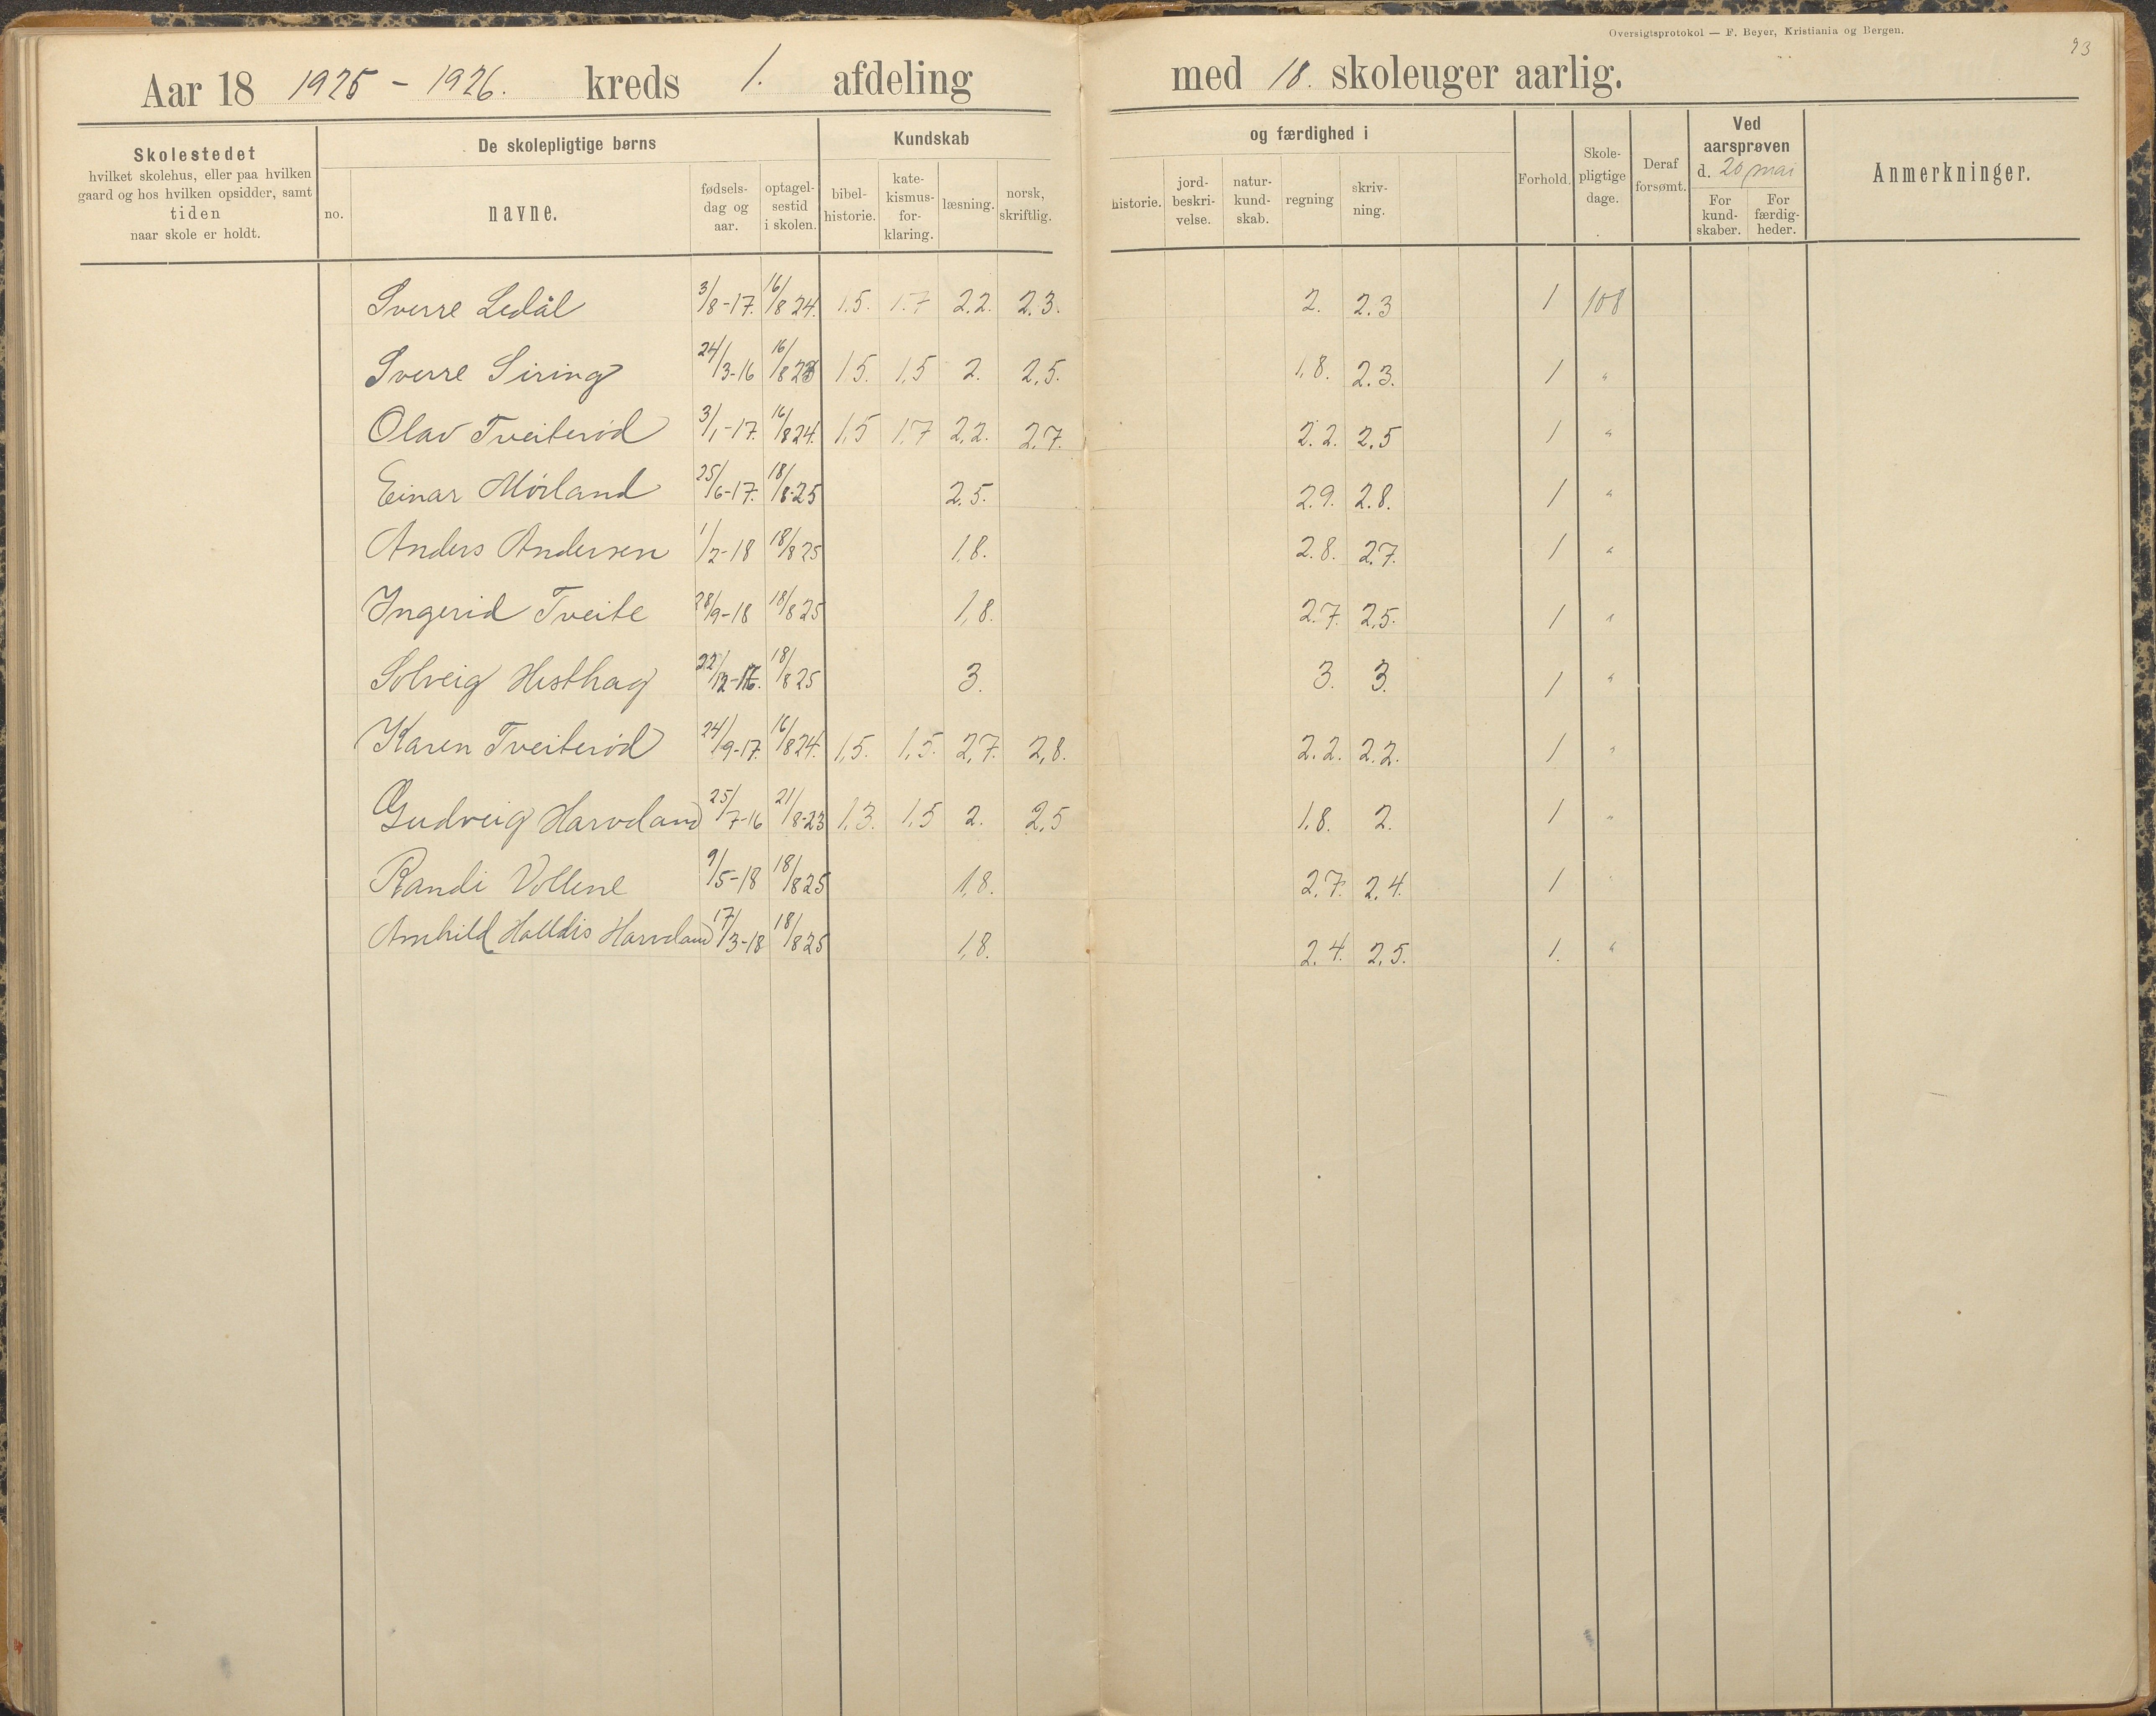 Oversigtsprotokol — F. Beyer, Kristiania og Bergen.
93
Aar 18 1925 - 1926. kreds 1. afdeling med 18. skoleuger aarlig.
Skolestedet
hvilket skolehus, eller paa hvilken
gaard og hos hvilken opsidder, samt
tiden
naar skole er holdt.
De skolepligtige børns
no.
navne.
fødsels-
dag og
aar.
optagel-
sestid
i skolen.
Kundskab
bibel-
historie.
kate-
kismus-
for-
klaring.
læsning.
norsk,
skriftlig.
og færdighed i
historie.
jord-
beskri-
velse.
natur-
kund-
skab.
regning
skriv-
ning.
Forhold.
Skole-
pligtige
dage.
Deraf
forsømt.
Ved
aarsprøven
d. 20 mai
For
kund-
skaber.
For
færdig-
heder.
Anmerkninger.
Sverre Ledål 3/8-17. 16/8 24. 1.5. 1.7 2.2. 2.3. 2. 2.3 1 108
Sverre Siring 24/3-16 16/8 23 1.5. 1,5 2. 2,5. 1,8. 2.3. 1 "
Olav Tveiterød 3/1-17. 16/8 24. 1,5 1,7 2,2. 2,7. 2.2. 2.5 1 "
Einar Mörland 25/6-17. 18/8-25 2.5. 2.9. 2.8. 1 "
Anders Andersen 1/2-18 18/8 25 1.8. 2.8. 2.7. 1 "
Ingerid Tveite 28/9-18 18/8 25 1,8. 2.7. 2,5. 1 "
Solveig Hesthag 22/12-16. 18/8 25 3. 3. 3. 1 "
Karen Tveiterød 24/9-17. 16/8 24. 1,5. 1,5. 2,7. 2,8. 2.2. 2.2. 1 "
Gudveig Harveland 25/7-16 21/8-23 1.3. 1,5 2. 2,5 1.8. 2. 1 "
Randi Vollene 9/5-18 18/8 25 1,8. 2.7. 2,4. 1 "
Arnhild Halldis Harveland 17/3-18 18/8 25 1,8. 2.4. 2,5. 1. "